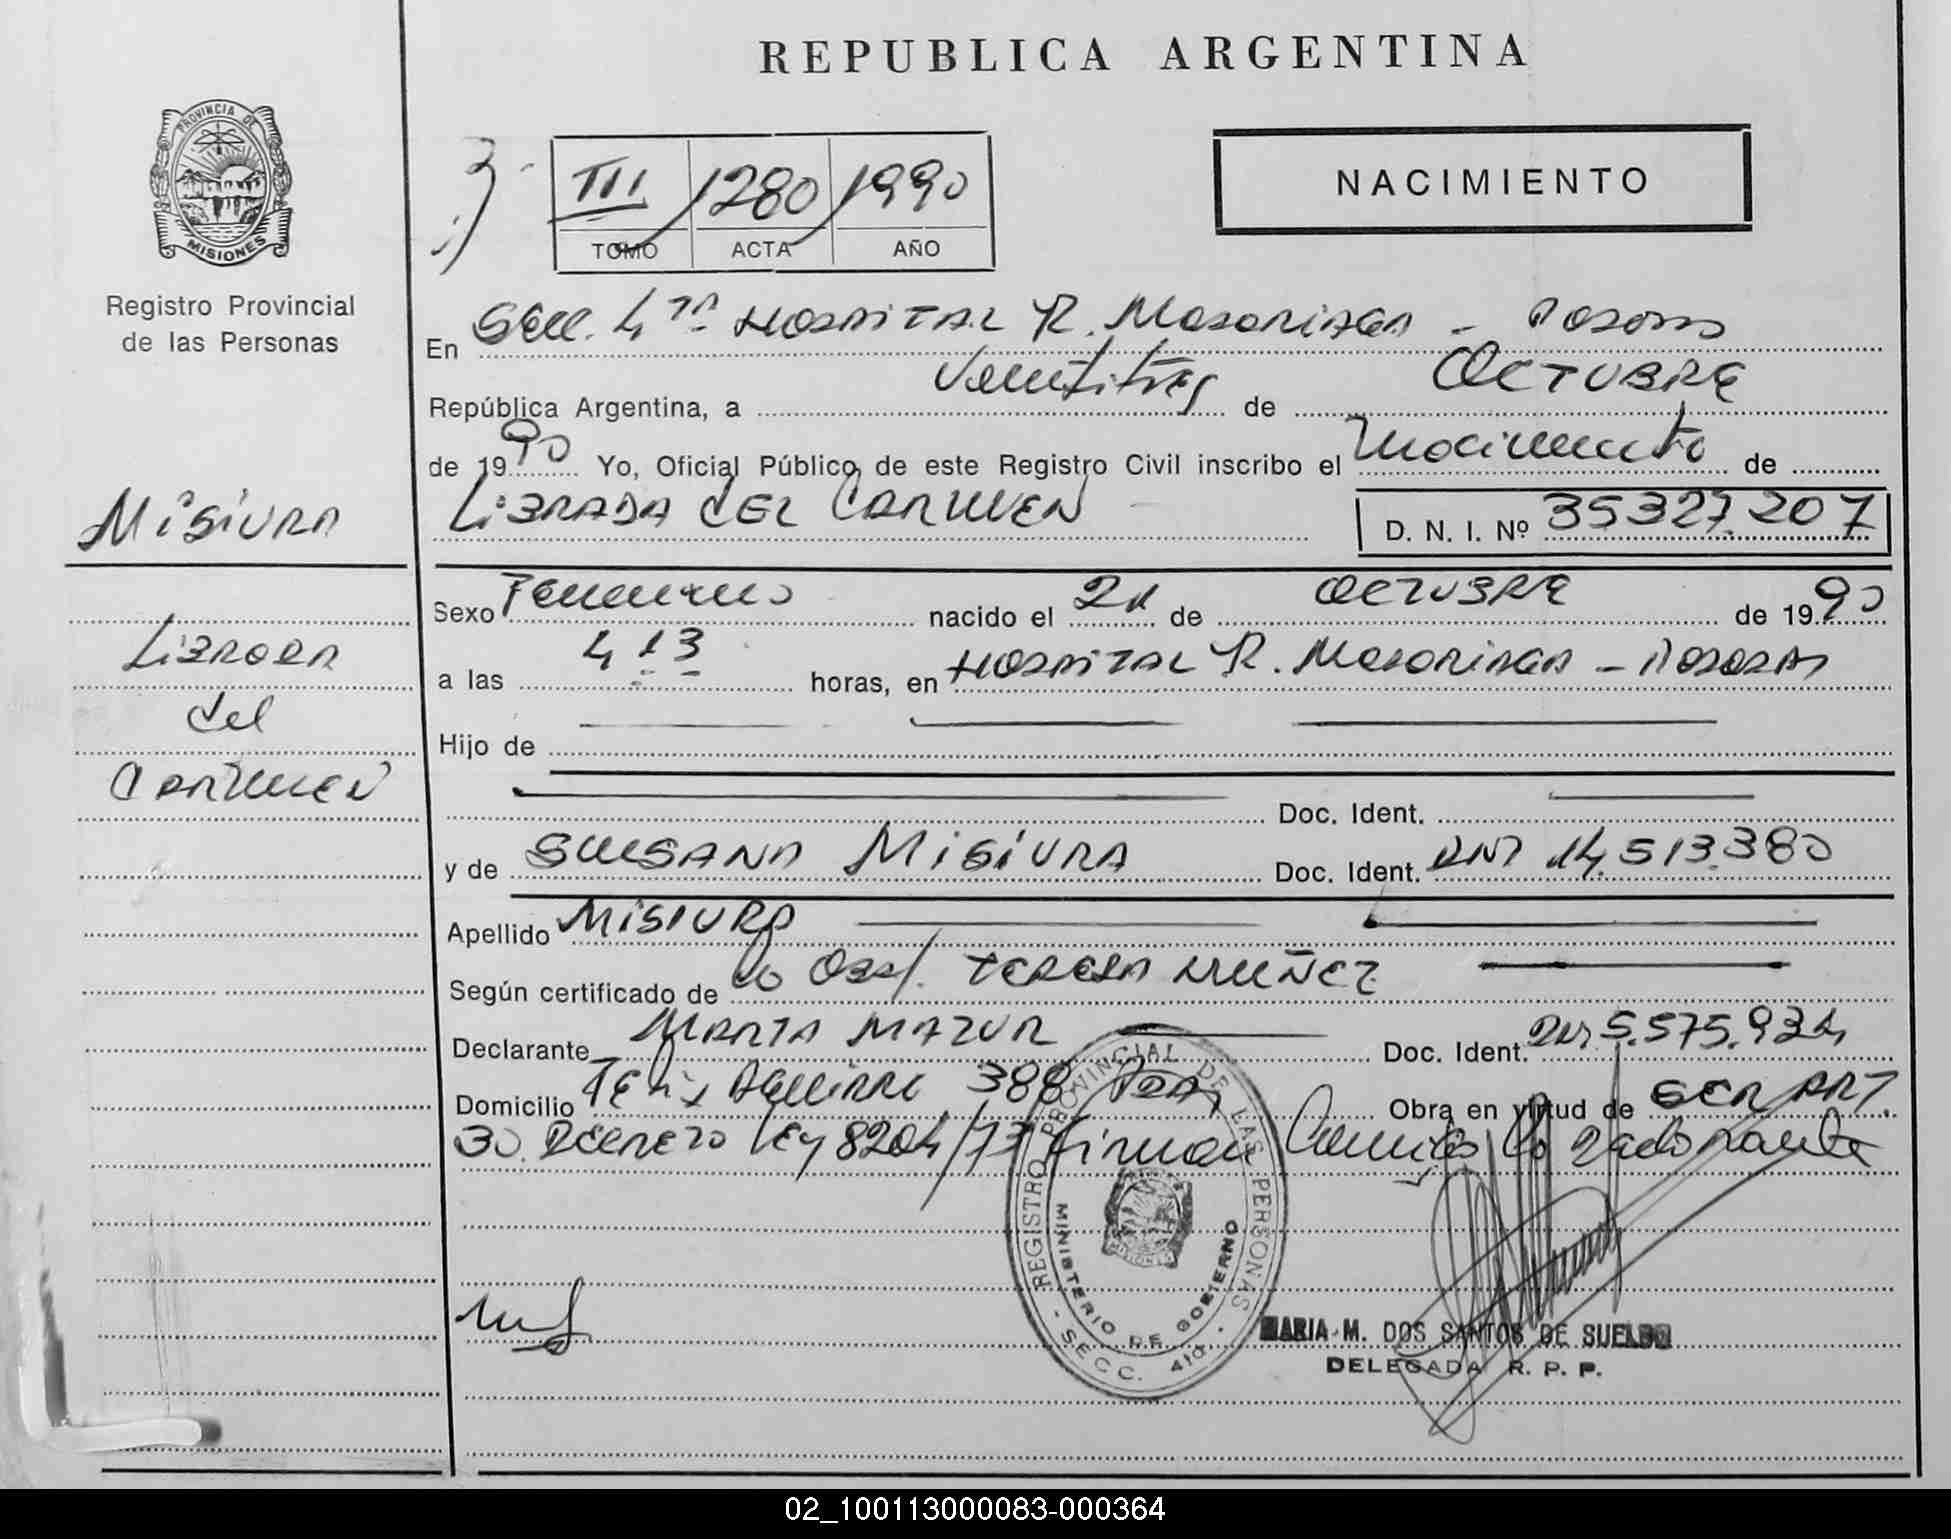 REPUBLICA ARGENTINA
PROVINCIA DE MISIONES
Registro Provincial
de las Personas
III 1280 1990
TOMO ACTA AÑO
NACIMIENTO
En Secc. 4ta HOSPITAL R. Madariaga - Posadas
República Argentina, a Veintitres de OCTUBRE
de 1990 Yo, Oficial Público de este Registro Civil inscribo el Nacimiento de
LIBRADA DEL CARMEN D. N. I. Nº 35.327.207
MISIURA
LIBRADA
del
CARMEN
Sexo Femenino nacido el de OCTUBRE de 1990
a las 4 horas, en HOSPITAL R. Madariaga - Posadas
Hijo de
Doc. Ident.
y de SUSANA MISIURA Doc. Ident. DNI 14.513.380
Apellido MISIURA
Según certificado de la Obst. TERESA NUÑEZ
Declarante MARTA MAZUR Doc. Ident. DNI 5.575.934
Domicilio Felix Aguirre 388 Pdas, Obra en virtud de SER ART.
30. Decreto Ley 8204/73 Firman Conmigo la Declarante
REGISTRO PROVINCIAL DE LAS PERSONAS
MINISTERIO DE GOBIERNO
- SECC. 4ta -
MARIA M. DOS SANTOS DE SUELDO
DELEGADA R. P. P.
02_100113000083-000364